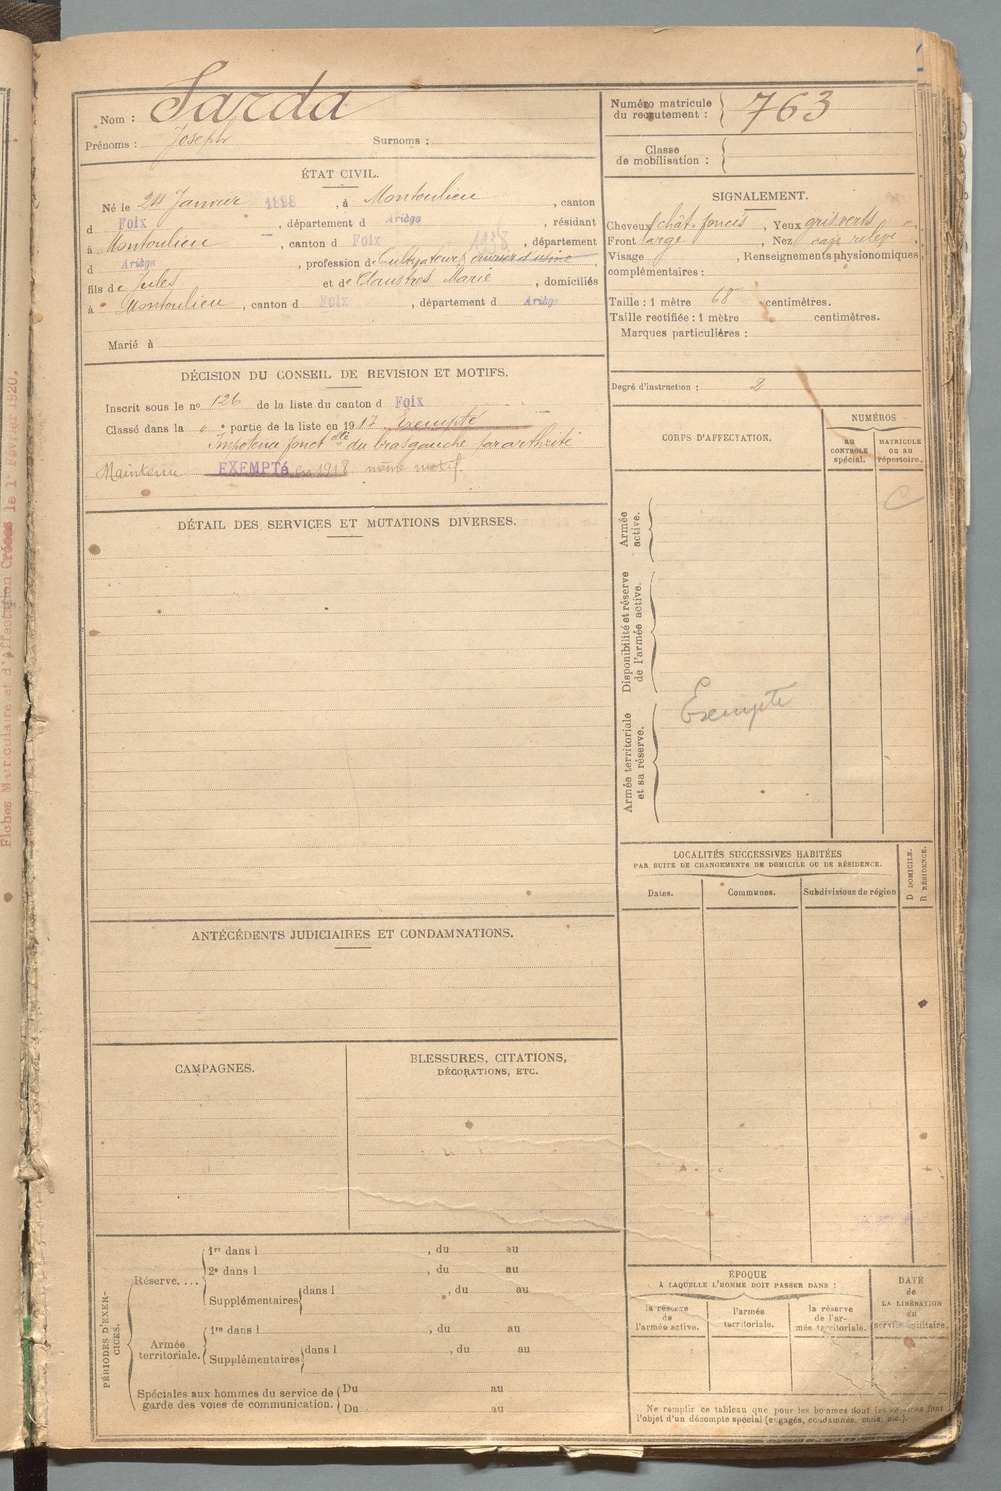 Nom : Sarda
Prénoms : Joseph Surnoms :
Numéro matricule du recrutement : 763
Classe de mobilisation :
ÉTAT CIVIL.
Né le 24 Janvier 1898, à Montoulieu, canton
d Foix, département d Ariège, résidant
à Montoulieu, canton d Foix, département 1938
d Ariège, profession de Cultivateur, ouvrier d'usine
fils de Jules et de Claustres Marie, domiciliés
à Montoulieu, canton d Foix, département d Ariège
Marié à
SIGNALEMENT.
Cheveux chât. foncés, Yeux gris verts,
Front large, Nez cave relevé,
Visage, Renseignements physionomiques
complémentaires :
Taille : 1 mètre 68 centimètres.
Taille rectifiée : 1 mètre centimètres.
Marques particulières :
Degré d'instruction : 2
DÉCISION DU CONSEIL DE REVISION ET MOTIFS.
Inscrit sous le nº 126 de la liste du canton d Foix
Classé dans la partie de la liste en 1917 Exempté
Impotence fonctelle du bras gauche par arthrite
Maintenu EXEMPTé en 1918. même motif.
CORPS D'AFFECTATION.
NUMÉROS
AU CONTRÔLE spécial.
MATRICULE OU AU répertoire.
C
Armée active.
Disponibilité et réserve de l'armée active.
Armée territoriale et sa réserve.
Exempté
DÉTAIL DES SERVICES ET MUTATIONS DIVERSES.
LOCALITÉS SUCCESSIVES HABITÉES
PAR SUITE DE CHANGEMENTS DE DOMICILE OU DE RÉSIDENCE.
Dates.
Communes.
Subdivisions de région
D DOMICILE.
R RÉSIDENCE.
ANTÉCÉDENTS JUDICIAIRES ET CONDAMNATIONS.
CAMPAGNES.
BLESSURES, CITATIONS,
DÉCORATIONS, ETC.
PÉRIODES D'EXERCICES.
Réserve....
1re dans l, du au
2e dans l, du au
Supplémentaires dans l, du au
Armée territoriale.
1re dans l, du au
Supplémentaires dans l, du au
Spéciales aux hommes du service de Du au
garde des voies de communication. Du au
ÉPOQUE
À LAQUELLE L'HOMME DOIT PASSER DANS :
la réserve de l'armée active.
l'armée territoriale.
la réserve de l'armée territoriale.
DATE de LA LIBÉRATION du service militaire.
Ne remplir ce tableau que pour les hommes dont les services font
l'objet d'un décompte spécial (engagés, condamnés, omis, etc.).
Fiches Matriculaire et d'Affectation Créées le 1er Février 1920.